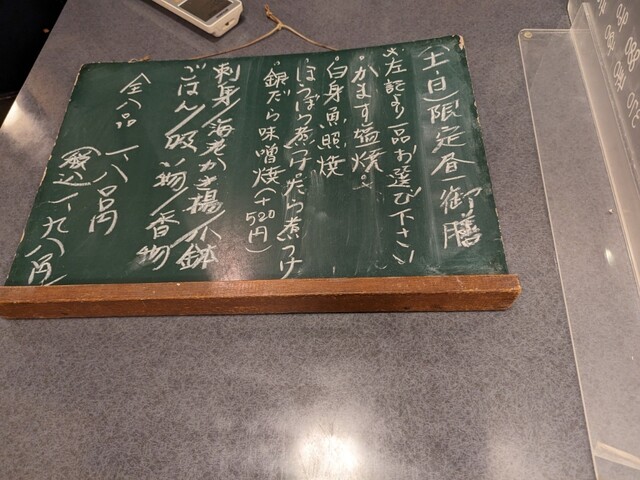 (土・日)限定昼御膳
※左記より一品お選び下さい
・かます塩焼
・白身魚照焼
・ほうぼう煮付・たら煮つけ
・銀だら味噌焼(+520円)
刺身/海老かき揚/小鉢
ごはん/吸い物/香物
全八品
一八〇〇円
(税込)一九八〇円